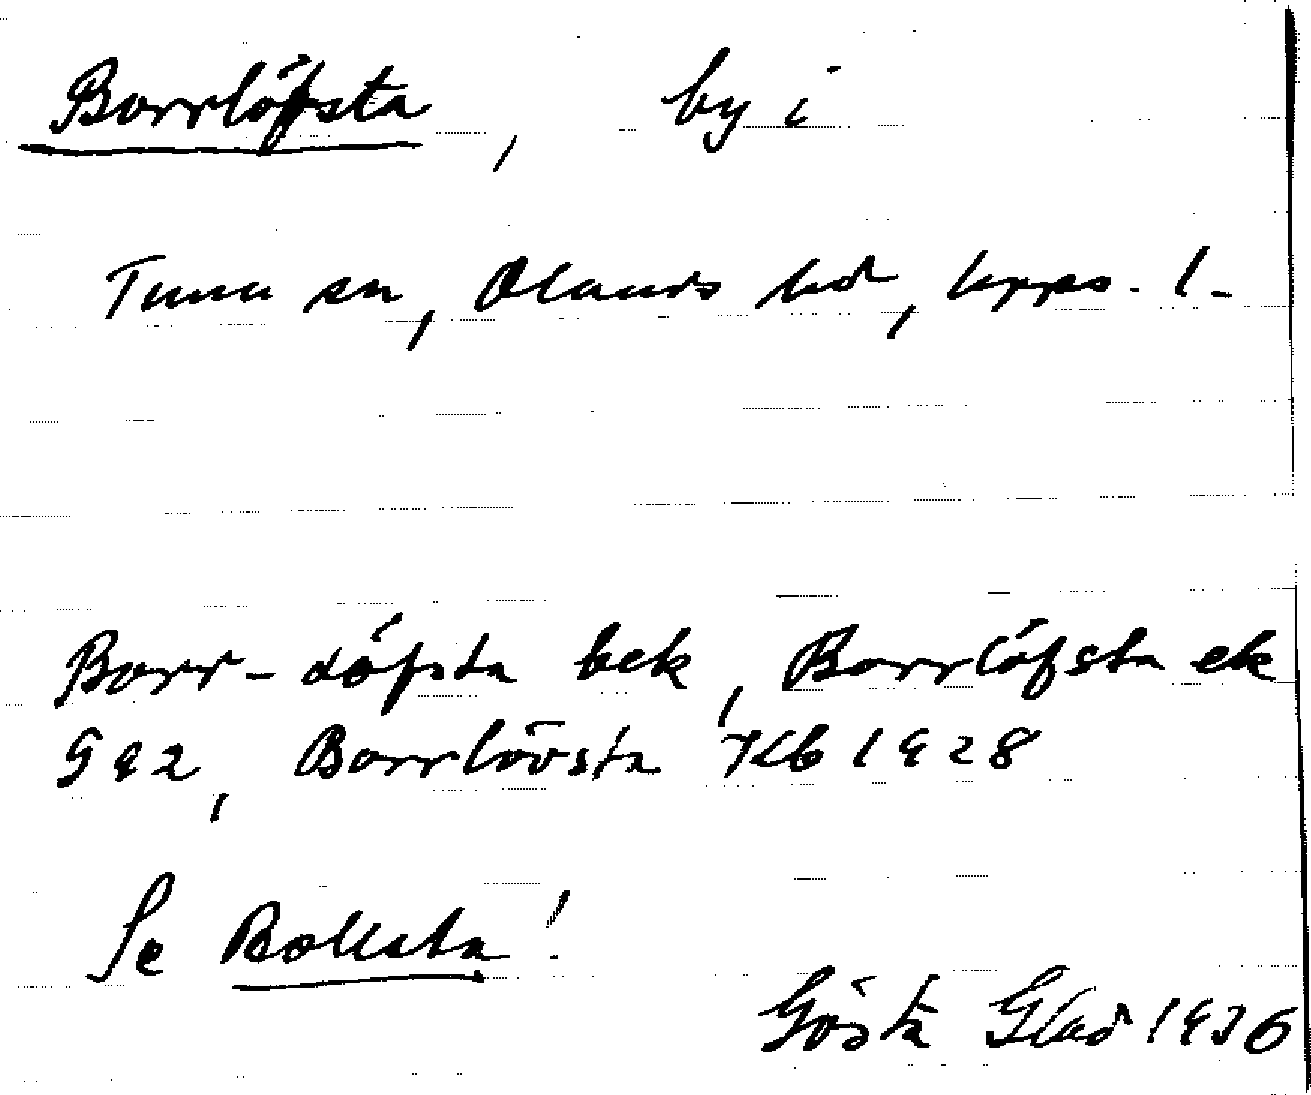 Borrlöfsta, by i
Tuna sn, Olands hd, Upps. l.
Borr-löfsta bek, Borrlöfsta ek
G 92, Borrlövsta Kb 1928
Se Bollsta!
Gösta Glad 1936